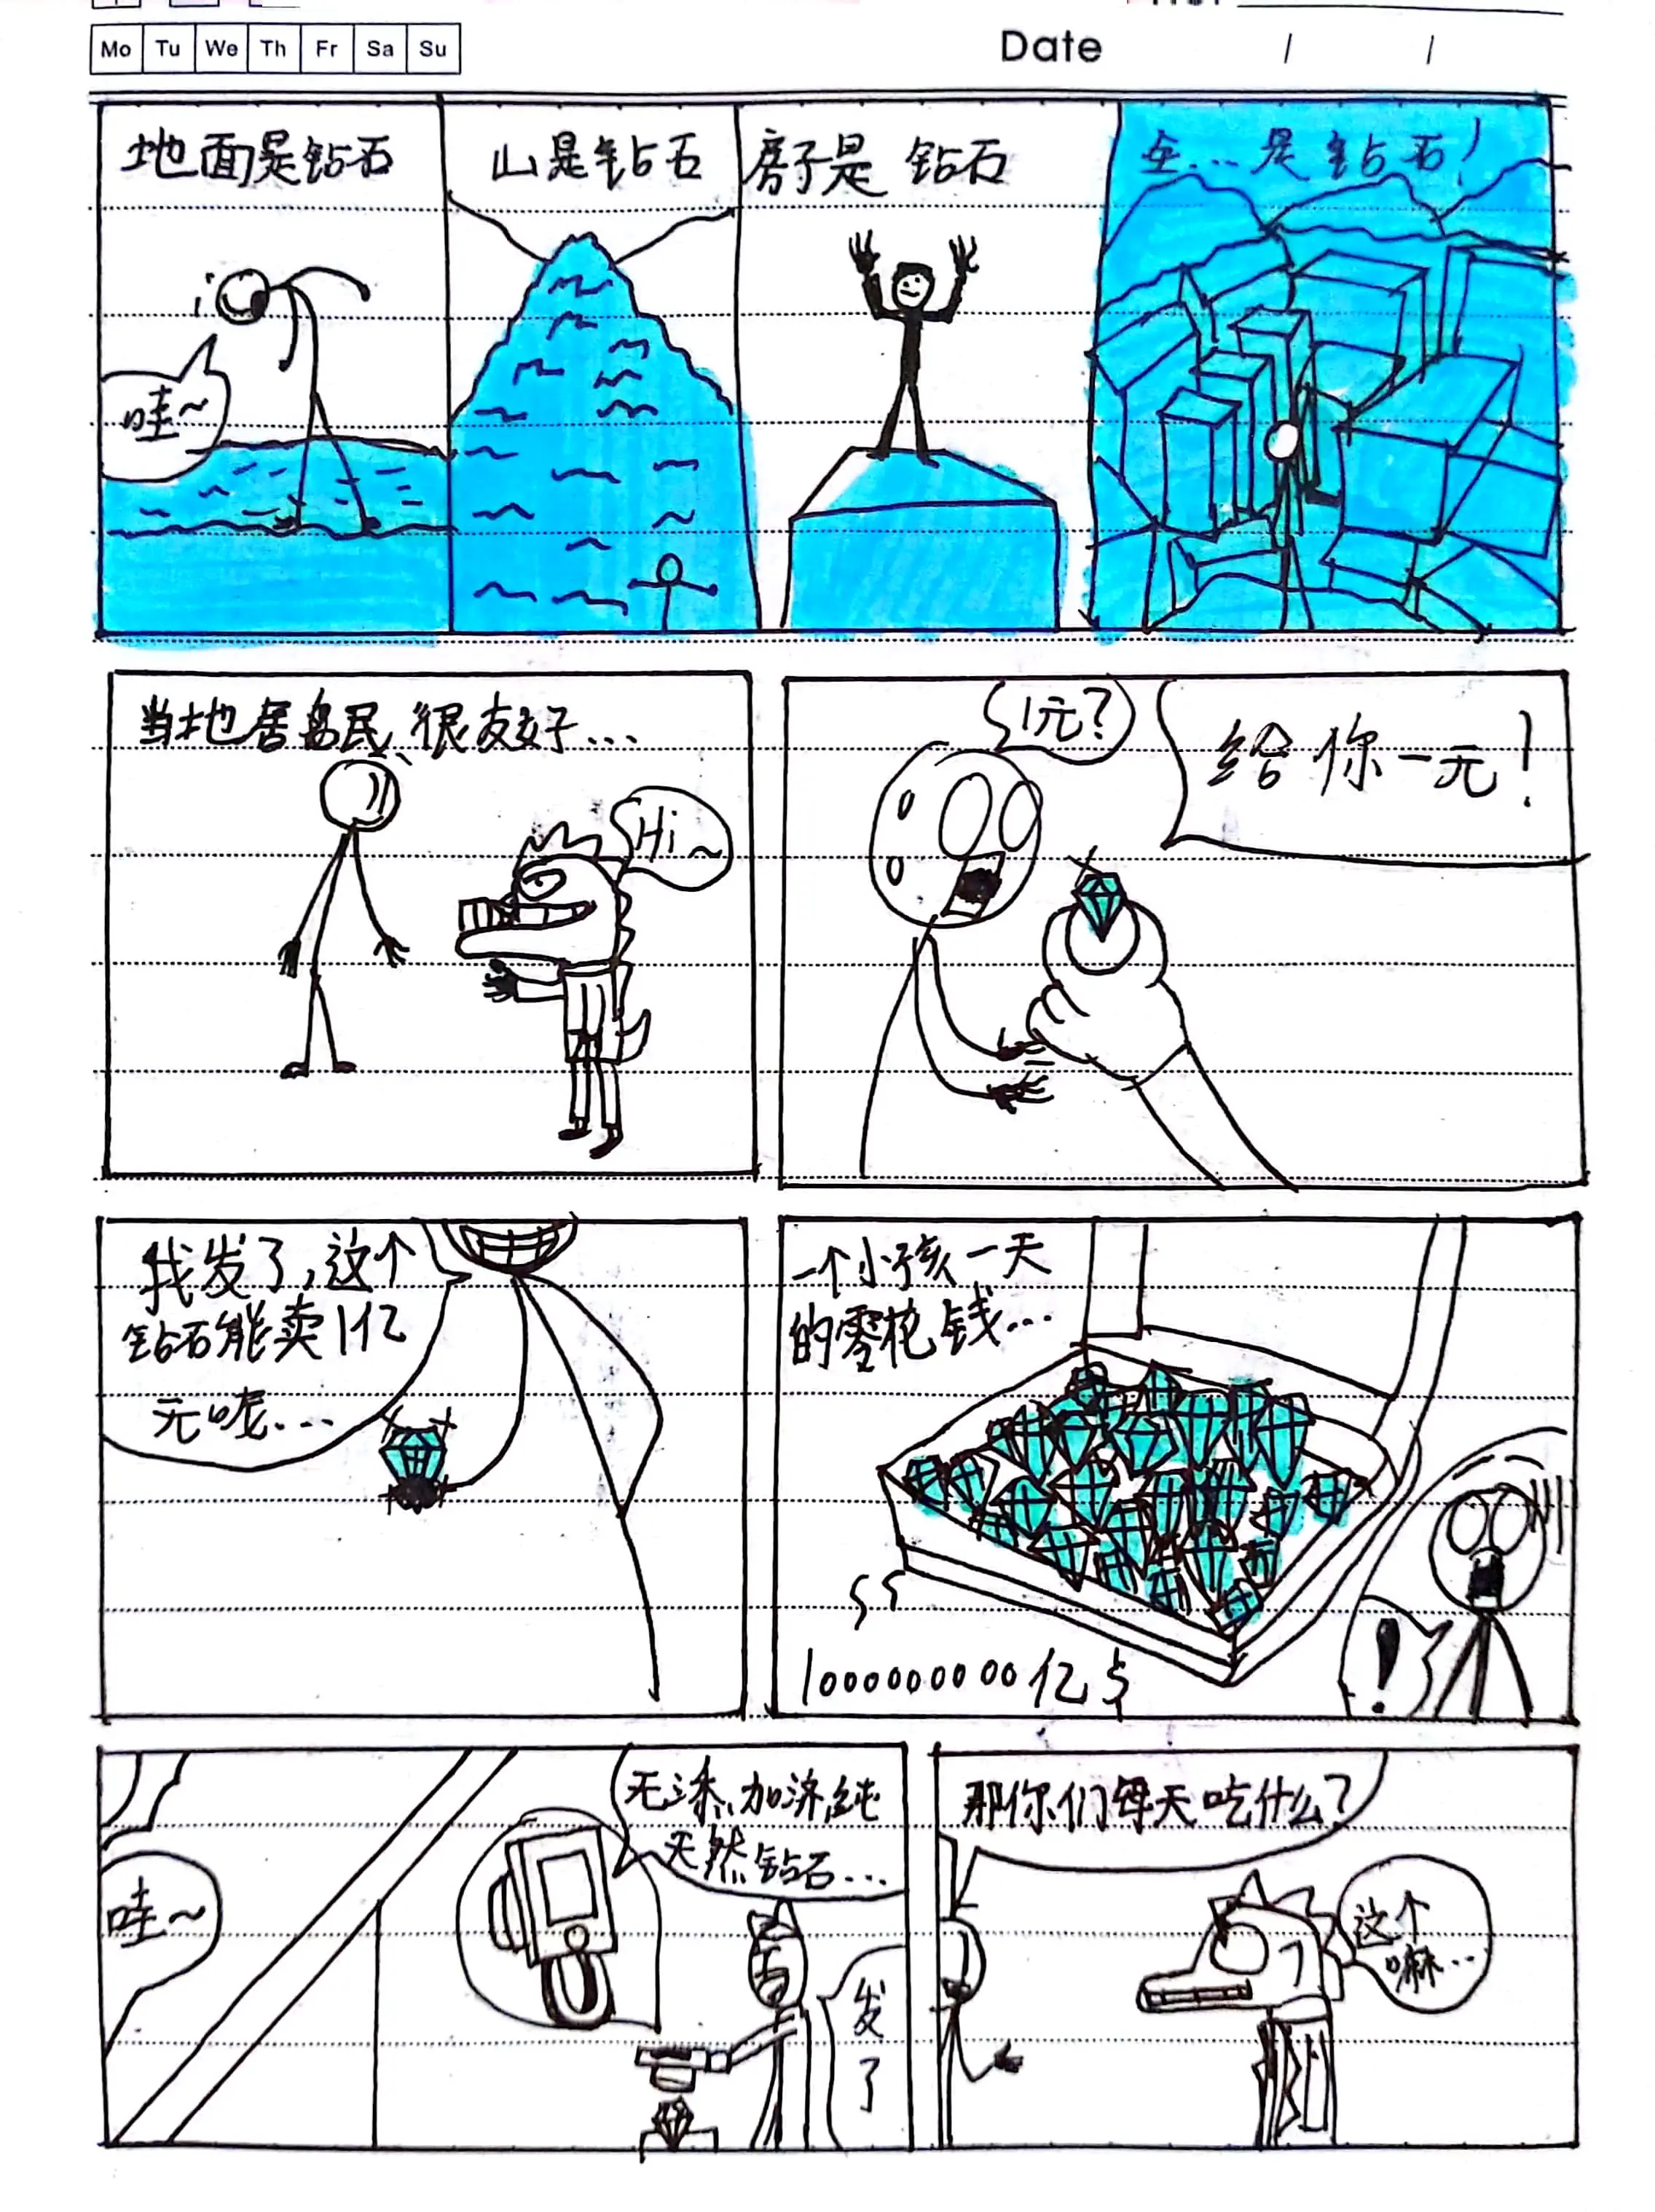 Mo Tu We Th Fr Sa Su
Date / /
地面是钻石
哇~
山是钻石
房子是 钻石
全...是钻石!
当地居岛民、很友好...
Hi~
1元?
给你一元!
我发了,这个
钻石能卖1亿
元呢...
一个小孩一天
的零花钱...
10000000000亿
!
哇~
无添、加济,纯
天然钻石...
发了
那你们每天吃什么?
这个
嘛...